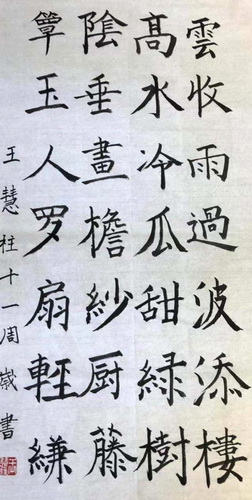 雲收雨過波添樓
髙水冷瓜甜緑樹
陰垂畫檐紗厨藤
簟玉人罗扇輕縑
王慧柱十一周歲書